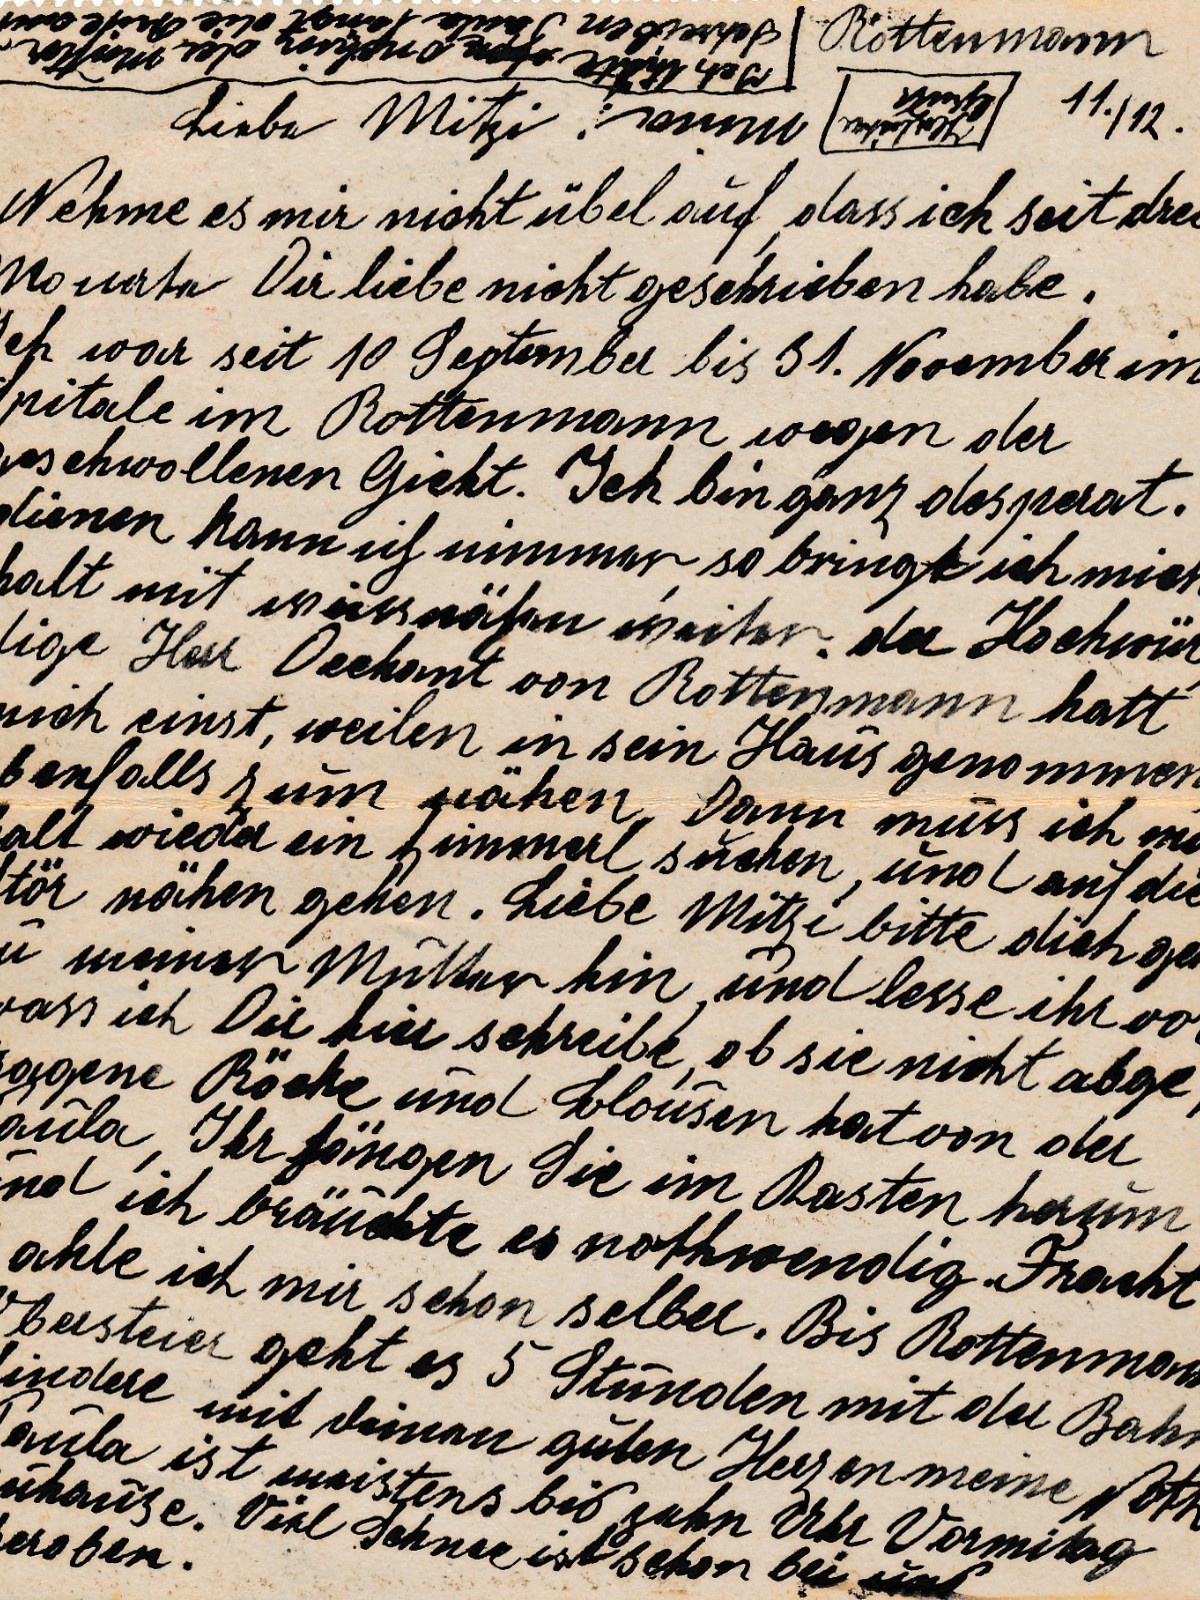 Rottenmann
11./12.
Liebe Mitzi!
Nehme es mir nicht übel auf, dass ich seit drei
Monate Dir liebe nicht geschrieben habe.
Ich war seit 10 September bis 31. November im
Spitale im Rottenmann wegen der
geschwollenen Gicht. Ich bin ganz desperat.
dienen kann ich nimmer so bringt ich mich
halt mit weissnähen weiter. der Hochwür
dige Herr Dechant von Rottenmann hatt
mich einst, weilen in sein Haus genommen
ebenfalls zum nähen, Dann muss ich mir
halt wieder ein Zimmerl suchen, und auf die
Stör nähen gehen. Liebe Mitzi bitte dich geh
zu meiner Mutter hin, und lesse ihr vor
wass ich Dir hier schreibe, ob sie nicht abge
tragene Röcke und Blousen hat von der
Paula, Ihr hängen Sie im Kasten herum
und ich bräuchte es nothwendig. Fracht
zahle ich mir schon selber. Bis Rottenmann
Obersteier geht es 5 Stunden mit der Bahn
lindere mit deinen guten Herzen meine Noth
Paula ist meistens bis zehn Uhr Vormitag
zuhause. Viel Schnee ist schon bei uns
heroben.
Ich
die Mutter
schreiben Paula fangt die
Herzlichen
Gruss